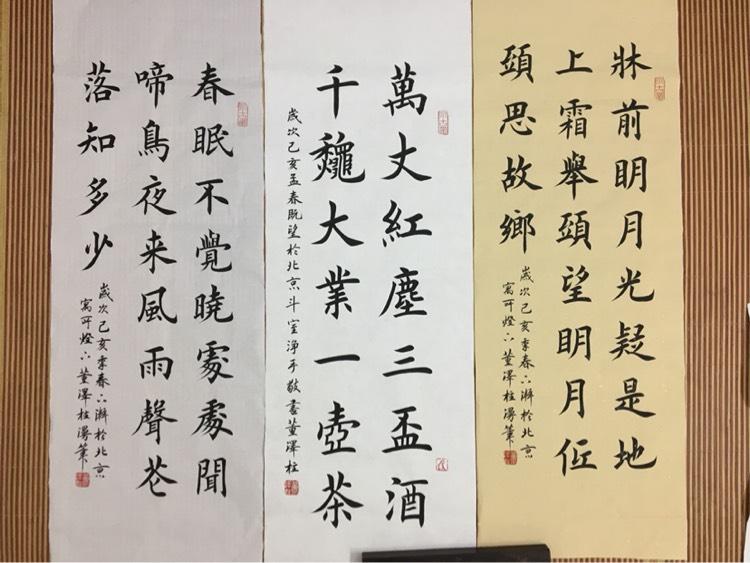 牀前明月光疑是地
上霜舉頭望明月低
頭思故鄉
歲次己亥季春下澣於北京
寓所燈下董澤柱漫筆
萬丈紅塵三盃酒
千龝大業一壺茶
歲次己亥孟春既望於北京斗室淨手敬書董澤柱
春眠不覺曉處處聞
啼鳥夜来風雨聲花
落知多少
歲次己亥季春下澣於北京
寓所燈下董澤柱漫筆